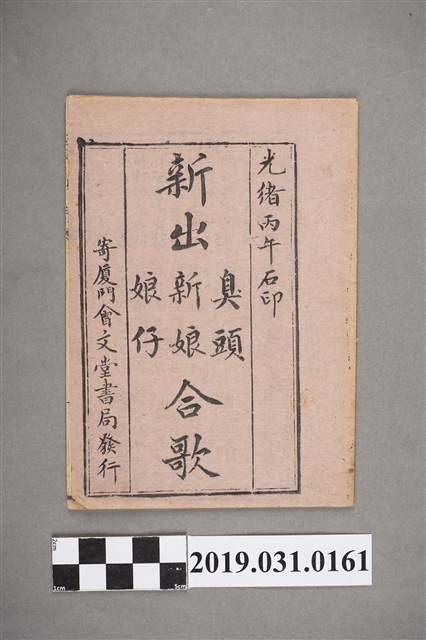 光緒丙午石印
新出臭頭新娘娘仔合歌
寄廈門會文堂書局發行
2cm
1cm
5cm
2019.031.0161